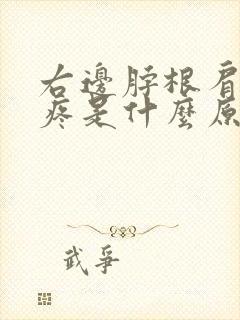 右邊脖根肩
疼是什麼原
武爭